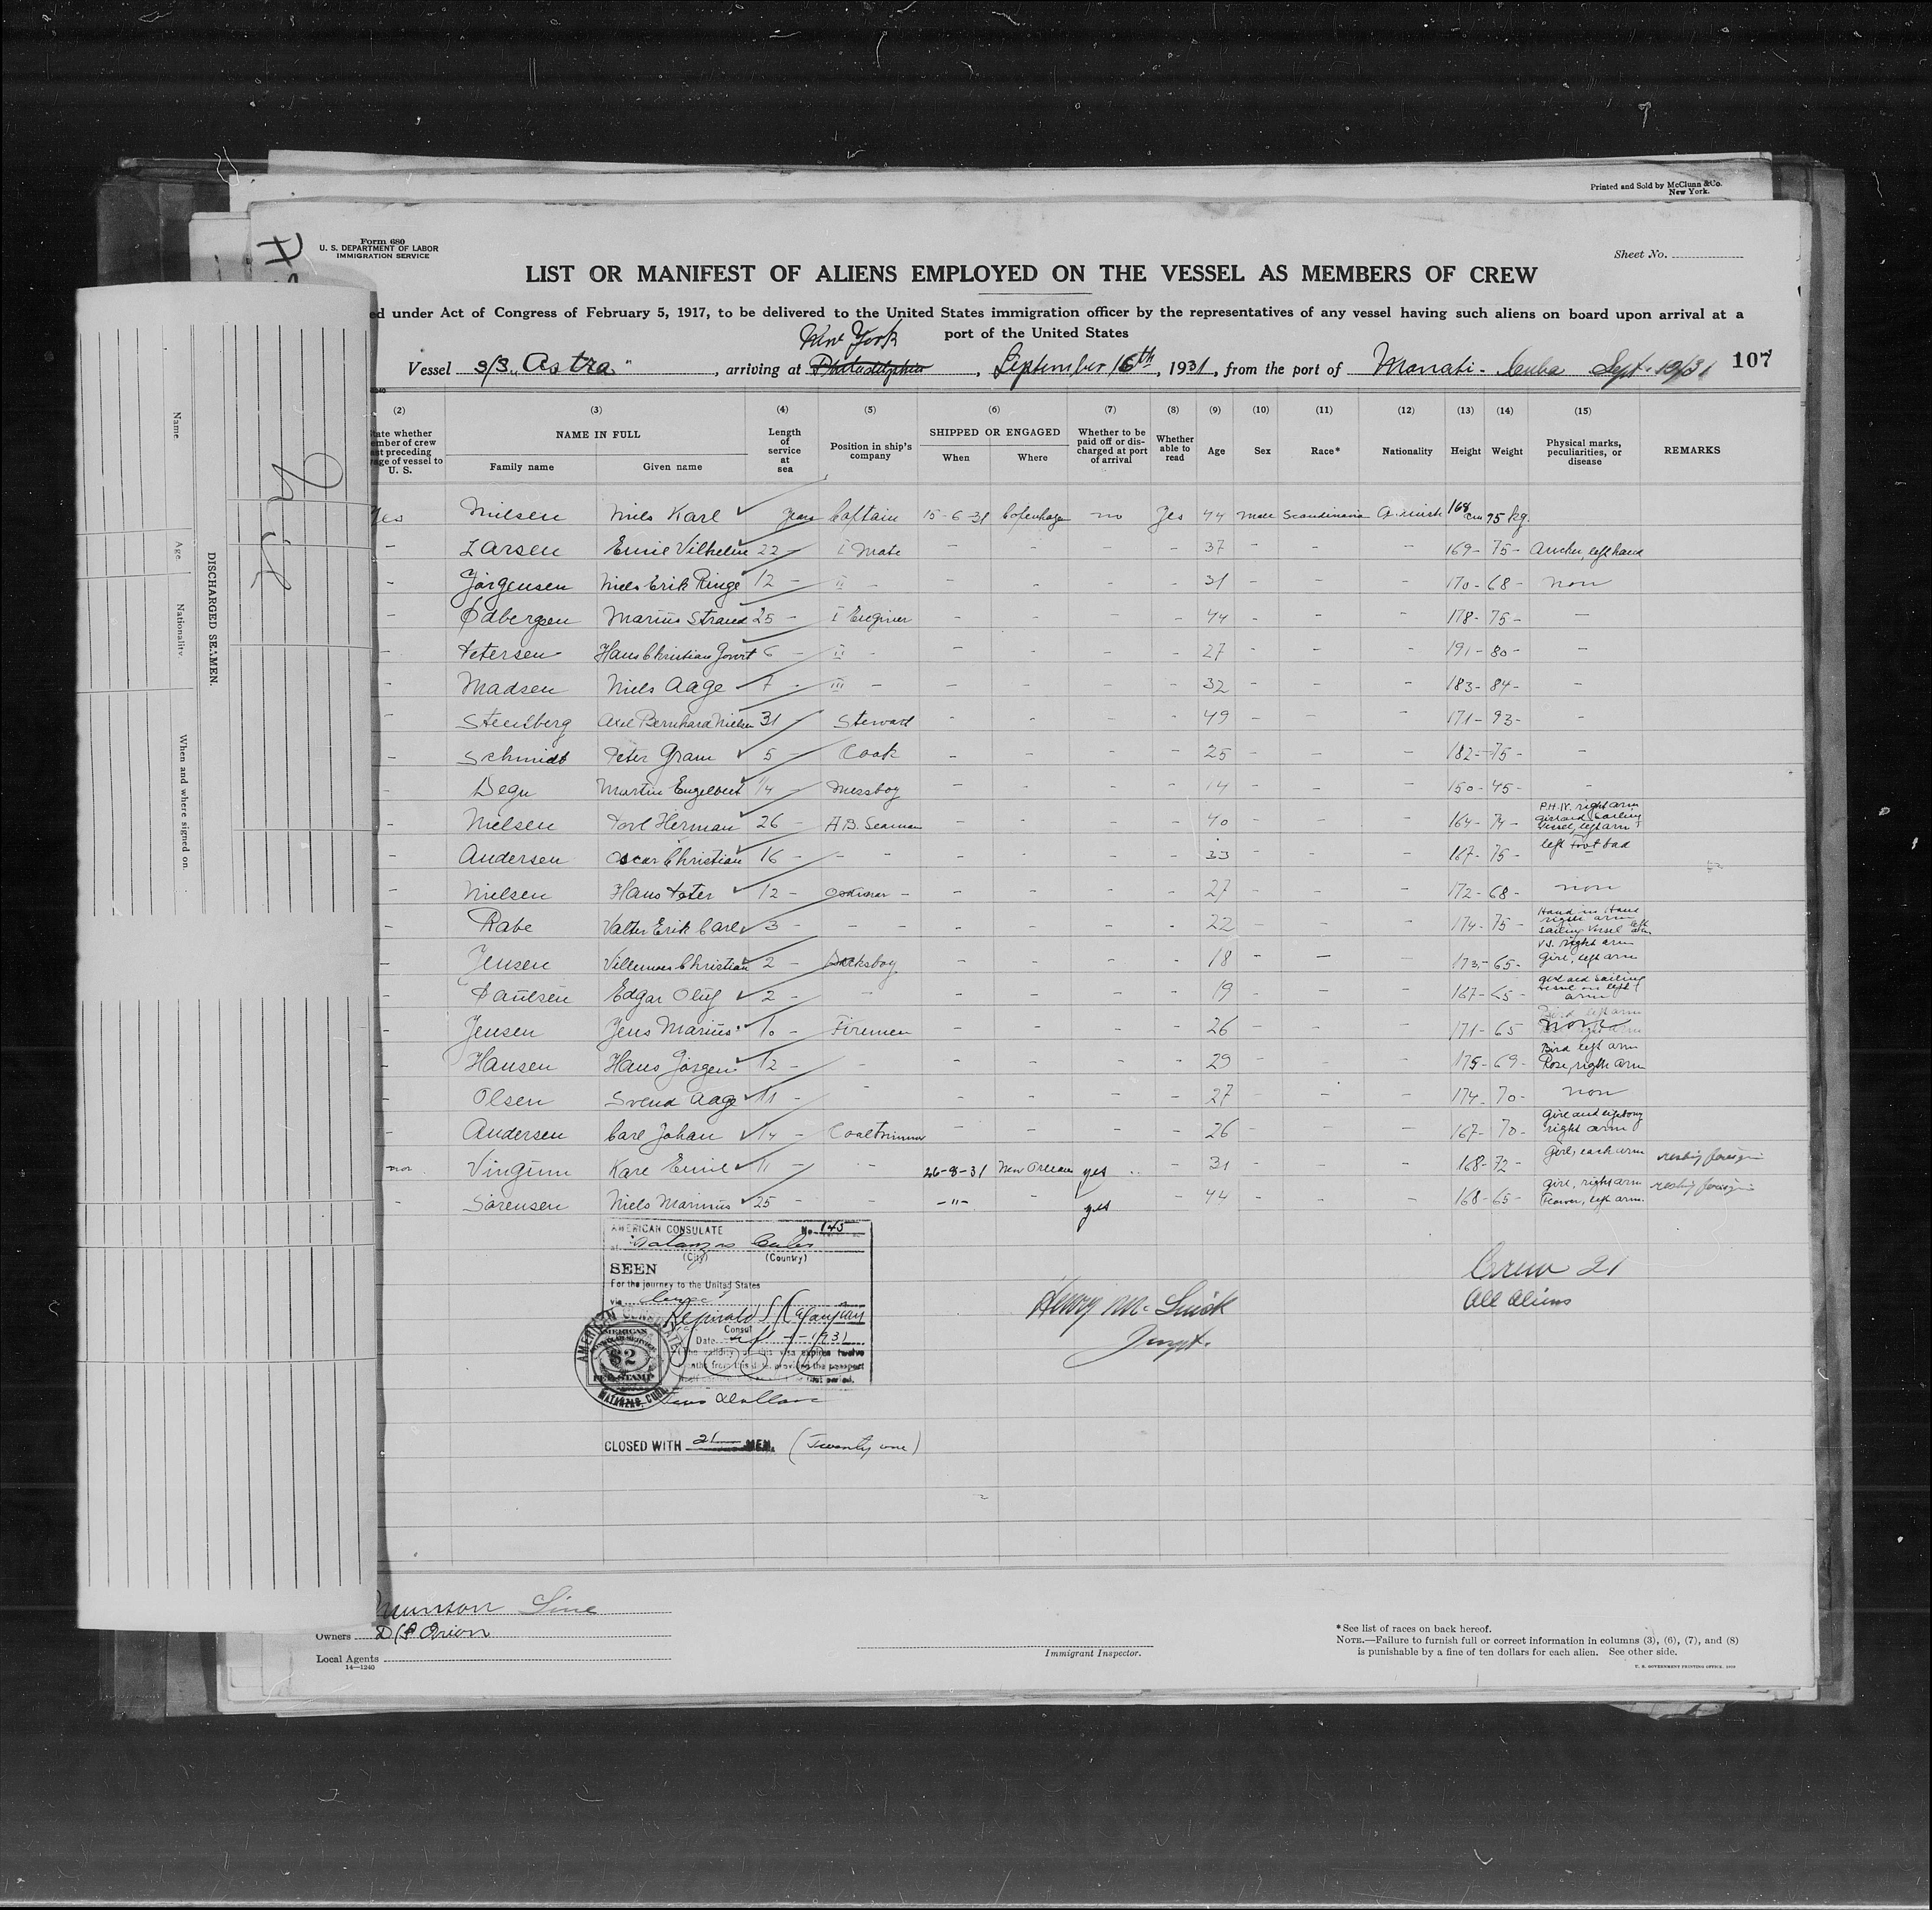 Printed and Sold by McClunn & Co.
New York.
Form 680
U. S. DEPARTMENT OF LABOR
IMMIGRATION SERVICE
Sheet No.
LIST OR MANIFEST OF ALIENS EMPLOYED ON THE VESSEL AS MEMBERS OF CREW
ed under Act of Congress of February 5, 1917, to be delivered to the United States immigration officer by the representatives of any vessel having such aliens on board upon arrival at a
port of the United States
New York
Vessel S/S „Astra" , arriving at Philadelphia , September 16th , 1931 , from the port of Manati - Cuba Sept. 107
(2) (3) (4) (5) (6) (7) (8) (9) (10) (11) (12) (13) (14) (15)
State whether member of crew last preceding voyage of vessel to U. S.
NAME IN FULL
Family name Given name
Length of service at sea
Position in ship's company
SHIPPED OR ENGAGED
When Where
Whether to be paid off or discharged at port of arrival
Whether able to read
Age Sex Race* Nationality Height Weight
Physical marks, peculiarities, or disease
REMARKS
Yes Nielsen Niels Karl years Captain 15-6-31 Copenhagen no Yes 44 Male Scandinavia 168 cm 75 kg.
- Larsen Emil Vilhelm 22 I Mate - - - - 37 - - - 169- 75- Ancher, left hand
- Jørgensen Niels Erik Ringe 12 - II - - - - - 31 - - - 170- 68- non
- Ødbergsen Marius Strand 25 - I Enginer - - - - 44 - - - 178- 75- -
- Petersen Hans Christian 6 - II - - - - - 27 - - - 191- 80- -
- Madsen Niels Aage 7 - III - - - - - 32 - - - 183- 84- -
- Stenberg Axel Bernhard Nielsen 31 Steward - - - - 49 - - - 171- 93- -
- Schmidt Peter Gram 5 - Cook - - - - 25 - - - 182- 75- -
- Degn Martin Engelbert 1/4 - Messboy - - - - 14 - - - 150- 45- -
- Nielsen Poul Herman 26 - A.B. Seaman - - - - 40 - - - 164- 74- P.H.N. right arm girl and sailing vessel, left arm
- Andersen Oscar Christian 16 - - - - - - - 33 - - - 167- 75- left foot bad
- Nielsen Hans Peter 12 - - - - - - 27 - - - 172- 68- non
- Rabe Valter Erik Carl 3 - - - - - - - 22 - - - 174- 75- Hand in Hand right arm sailing vessel left arm
- Jensen Villemoes Christian 2 - Decksboy - - - - 18 - - - 173- 65- V.S. right arm Girl, left arm
- Paulsen Edgar Oluf 2 - - - - - - 19 - - - 167- 65- girl and sailing vessel on left arm
- Jensen Jens Marius 10 - Firemen - - - - 26 - - - 171- 65 non
- Hansen Hans Jørgen 12 - - - - - - 29 - - - 175- 69- Bird left arm Rose, right arm
- Olsen Svend Aage 11 - - - - - - 27 - - - 174- 70- non
- Andersen Carl Johan 14 - Coaltrimmer - - - - 26 - - - 167- 70- right arm
non Karl Emil 11 - - 26-8-31 New Orleans yes - 31 - - - 168- 72- Girl, each arm
- Sørensen Niels Marinus 25 - - -"- yes - 44 - - - 168- 65- girl, right arm Flower, left arm.
AMERICAN CONSULATE No. 145
at Matanzas Cuba
(City) (Country)
SEEN
For the journey to the United States
via
Consul
Date
the validity of this visa expires twelve
months from this date, provided the passport
AMERICAN CONSULATE
AMERICAN
$2
FEE STAMP
MATANZAS, CUBA
Two Dollars
CLOSED WITH 21 MEN. (Twenty one)
Crew 21
All Aliens
Henry
Inspt.
Munson Line
Owners D/S Orion
Local Agents
14—1240
Immigrant Inspector.
*See list of races on back hereof.
NOTE.—Failure to furnish full or correct information in columns (3), (6), (7), and (8)
is punishable by a fine of ten dollars for each alien. See other side.
U. S. GOVERNMENT PRINTING OFFICE
DISCHARGED SEAMEN.
Name.
Age.
Nationality.
When and where signed on.